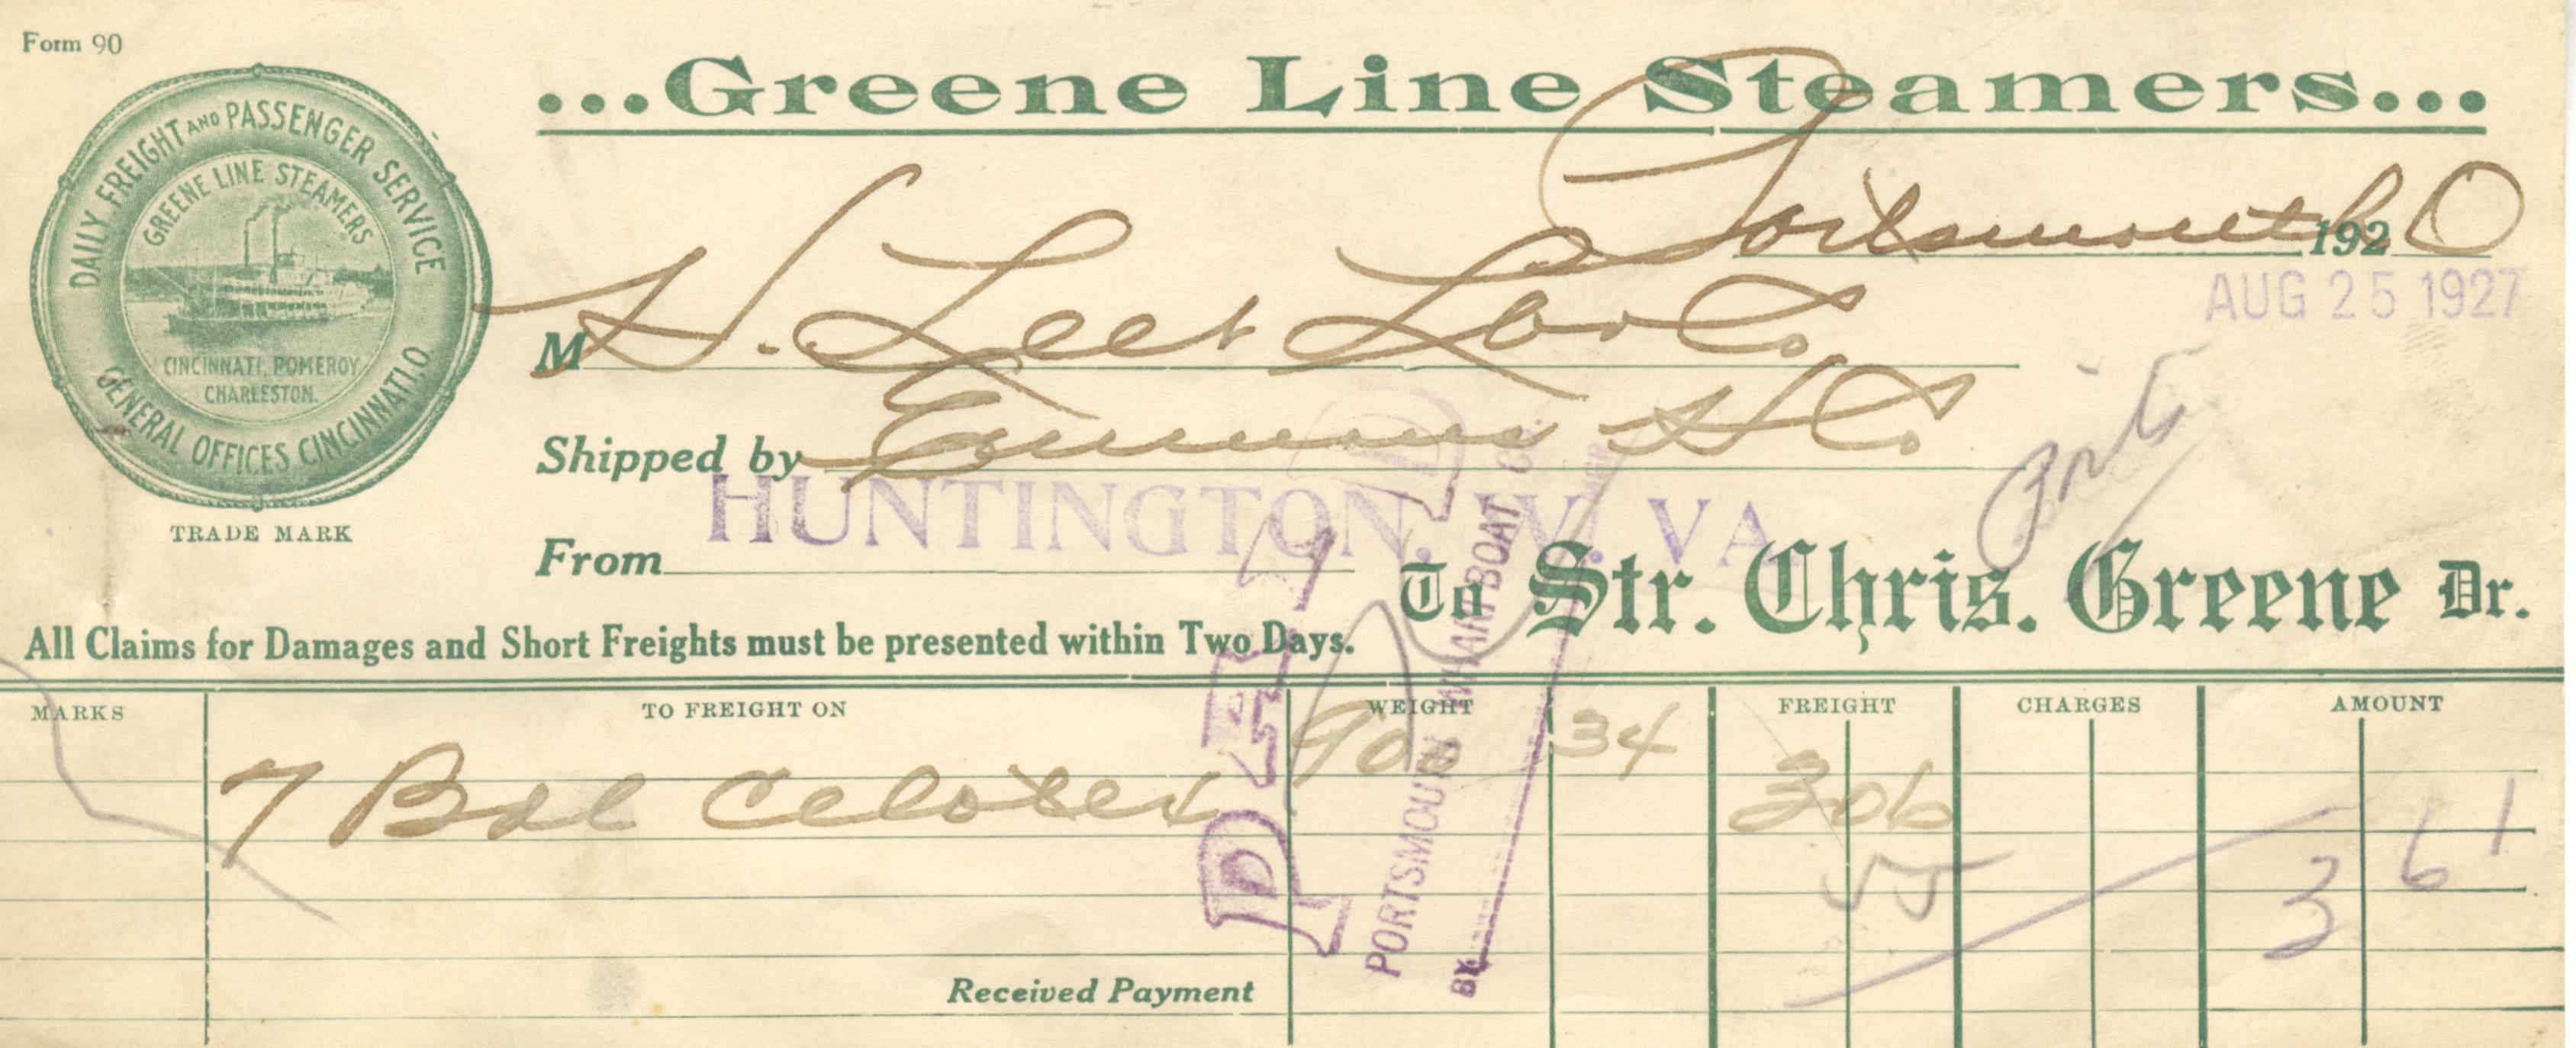 Form 90
...Greene Line Steamers...
DAILY FREIGHT AND PASSENGER SERVICE
GREENE LINE STEAMERS
CINCINNATI, POMEROY
CHARLESTON.
GENERAL OFFICES CINCINNATI O.
TRADE MARK
Portsmouth O 192
AUG 25 1927
M H. Leet Lbr Co.
Shipped by Emmons H Co.
Ports
From HUNTINGTON. W. VA.
To Str. Chris. Greene Dr.
All Claims for Damages and Short Freights must be presented within Two Days.
MARKS TO FREIGHT ON WEIGHT FREIGHT CHARGES AMOUNT
7 Bdl Celotex 900 34 306
55
3 61
PAID
PORTSMOUTH WHARFBOAT CO.
BY
Received Payment